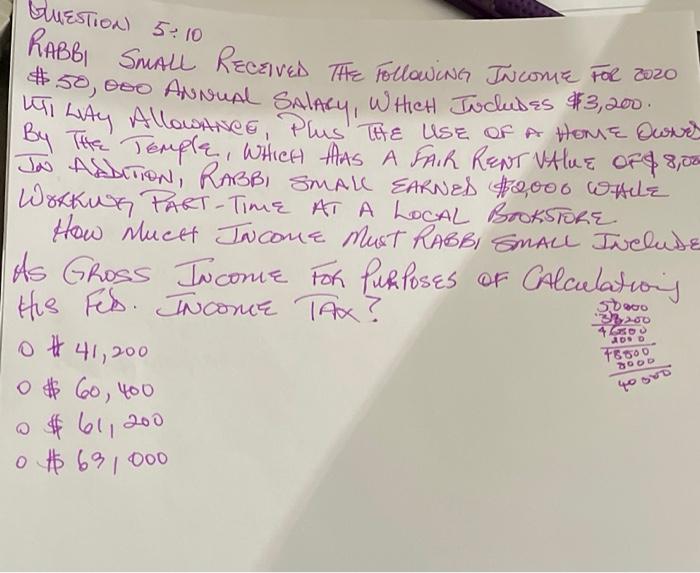 QUESTION 5:10
RABBI SMALL RECEIVED THE FOLLOWING INCOME FOR 2020
$50,000 ANNUAL SALARY, WHICH INCLUDES $3,200.
UTILITY ALLOWANCE, PLUS THE USE OF A HOME OWNED
BY THE TEMPLE, WHICH HAS A FAIR RENT VALUE OF $8,00
IN ADDITION, RABBI SMALL EARNED WHILE
WORKING PART-TIME AT A LOCAL BOOKSTORE.
HOW MUCH INCOME MUST RABBI SMALL INCLUDE
AS GROSS INCOME FOR PURPOSES OF CALCULATIONS
HIS FED. INCOME TAX?
50000
46800
2000
48800
8000
O $ 41,200
O $ 60,400
O $ 61,200
O $ 63,000